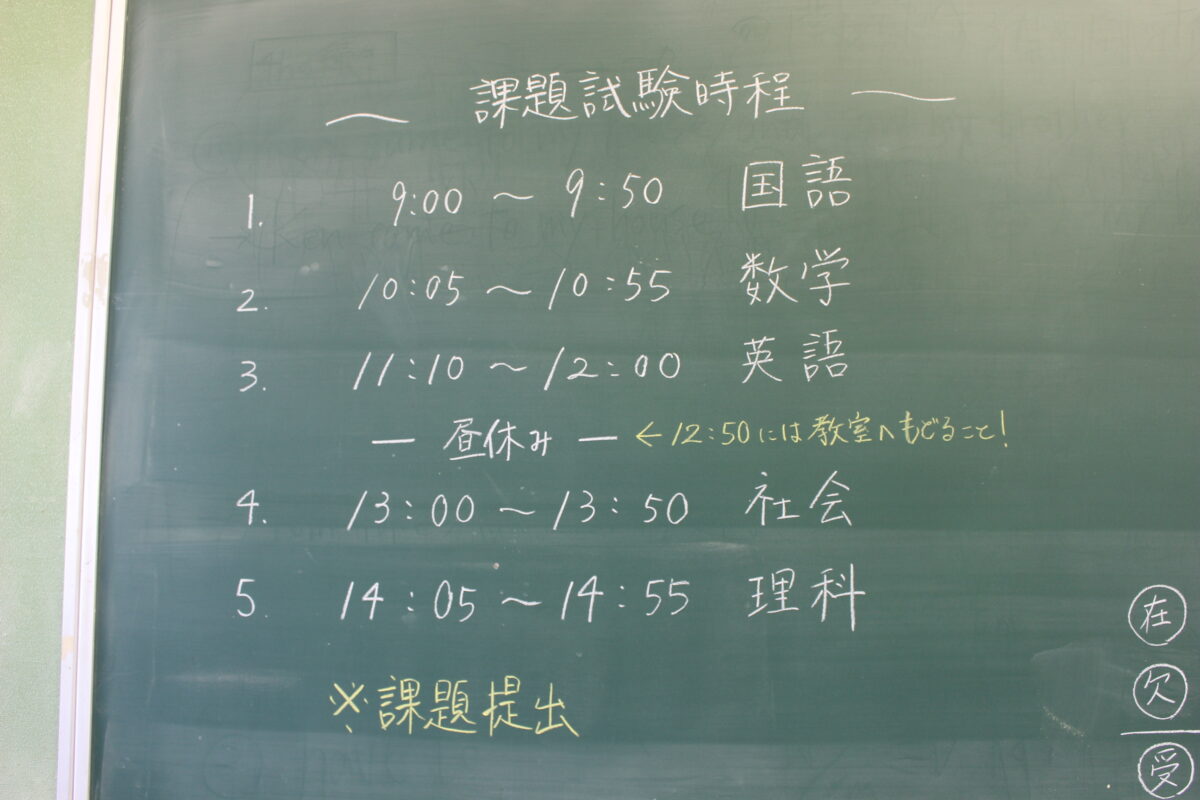 ～ 課題試験時程 ～
1. 9:00 ～ 9:50 国語
2. 10:05 ～ 10:55 数学
3. 11:10 ～ 12:00 英語
— 昼休み — ←12:50には教室へもどること!
4. 13:00 ～ 13:50 社会
5. 14:05 ～ 14:55 理科
※課題提出
在
欠
受